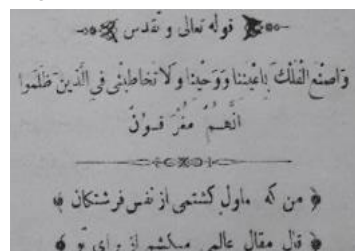 قوله تعالى و تقدس
وَاصْنَعِ الْفُلْكَ بِاَعْيُنِنا وَوَحْيِنا وَلا تُخاطِبْنى فِى الَّذينَ ظَلَمُوا
اِنَّهُمْ مُغْرَقُونَ
من که ملول کشتمی از نفس فرشتکان
قال مقال عالمی میکشم از برای تو